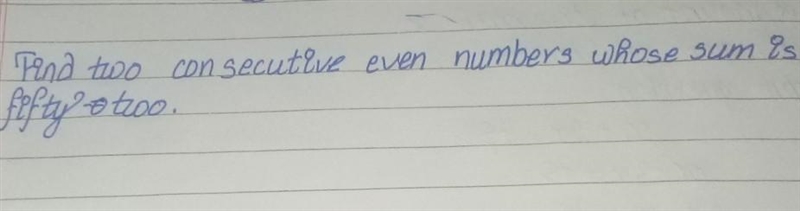 Find two consecutive even numbers whose sum is
fifty two.